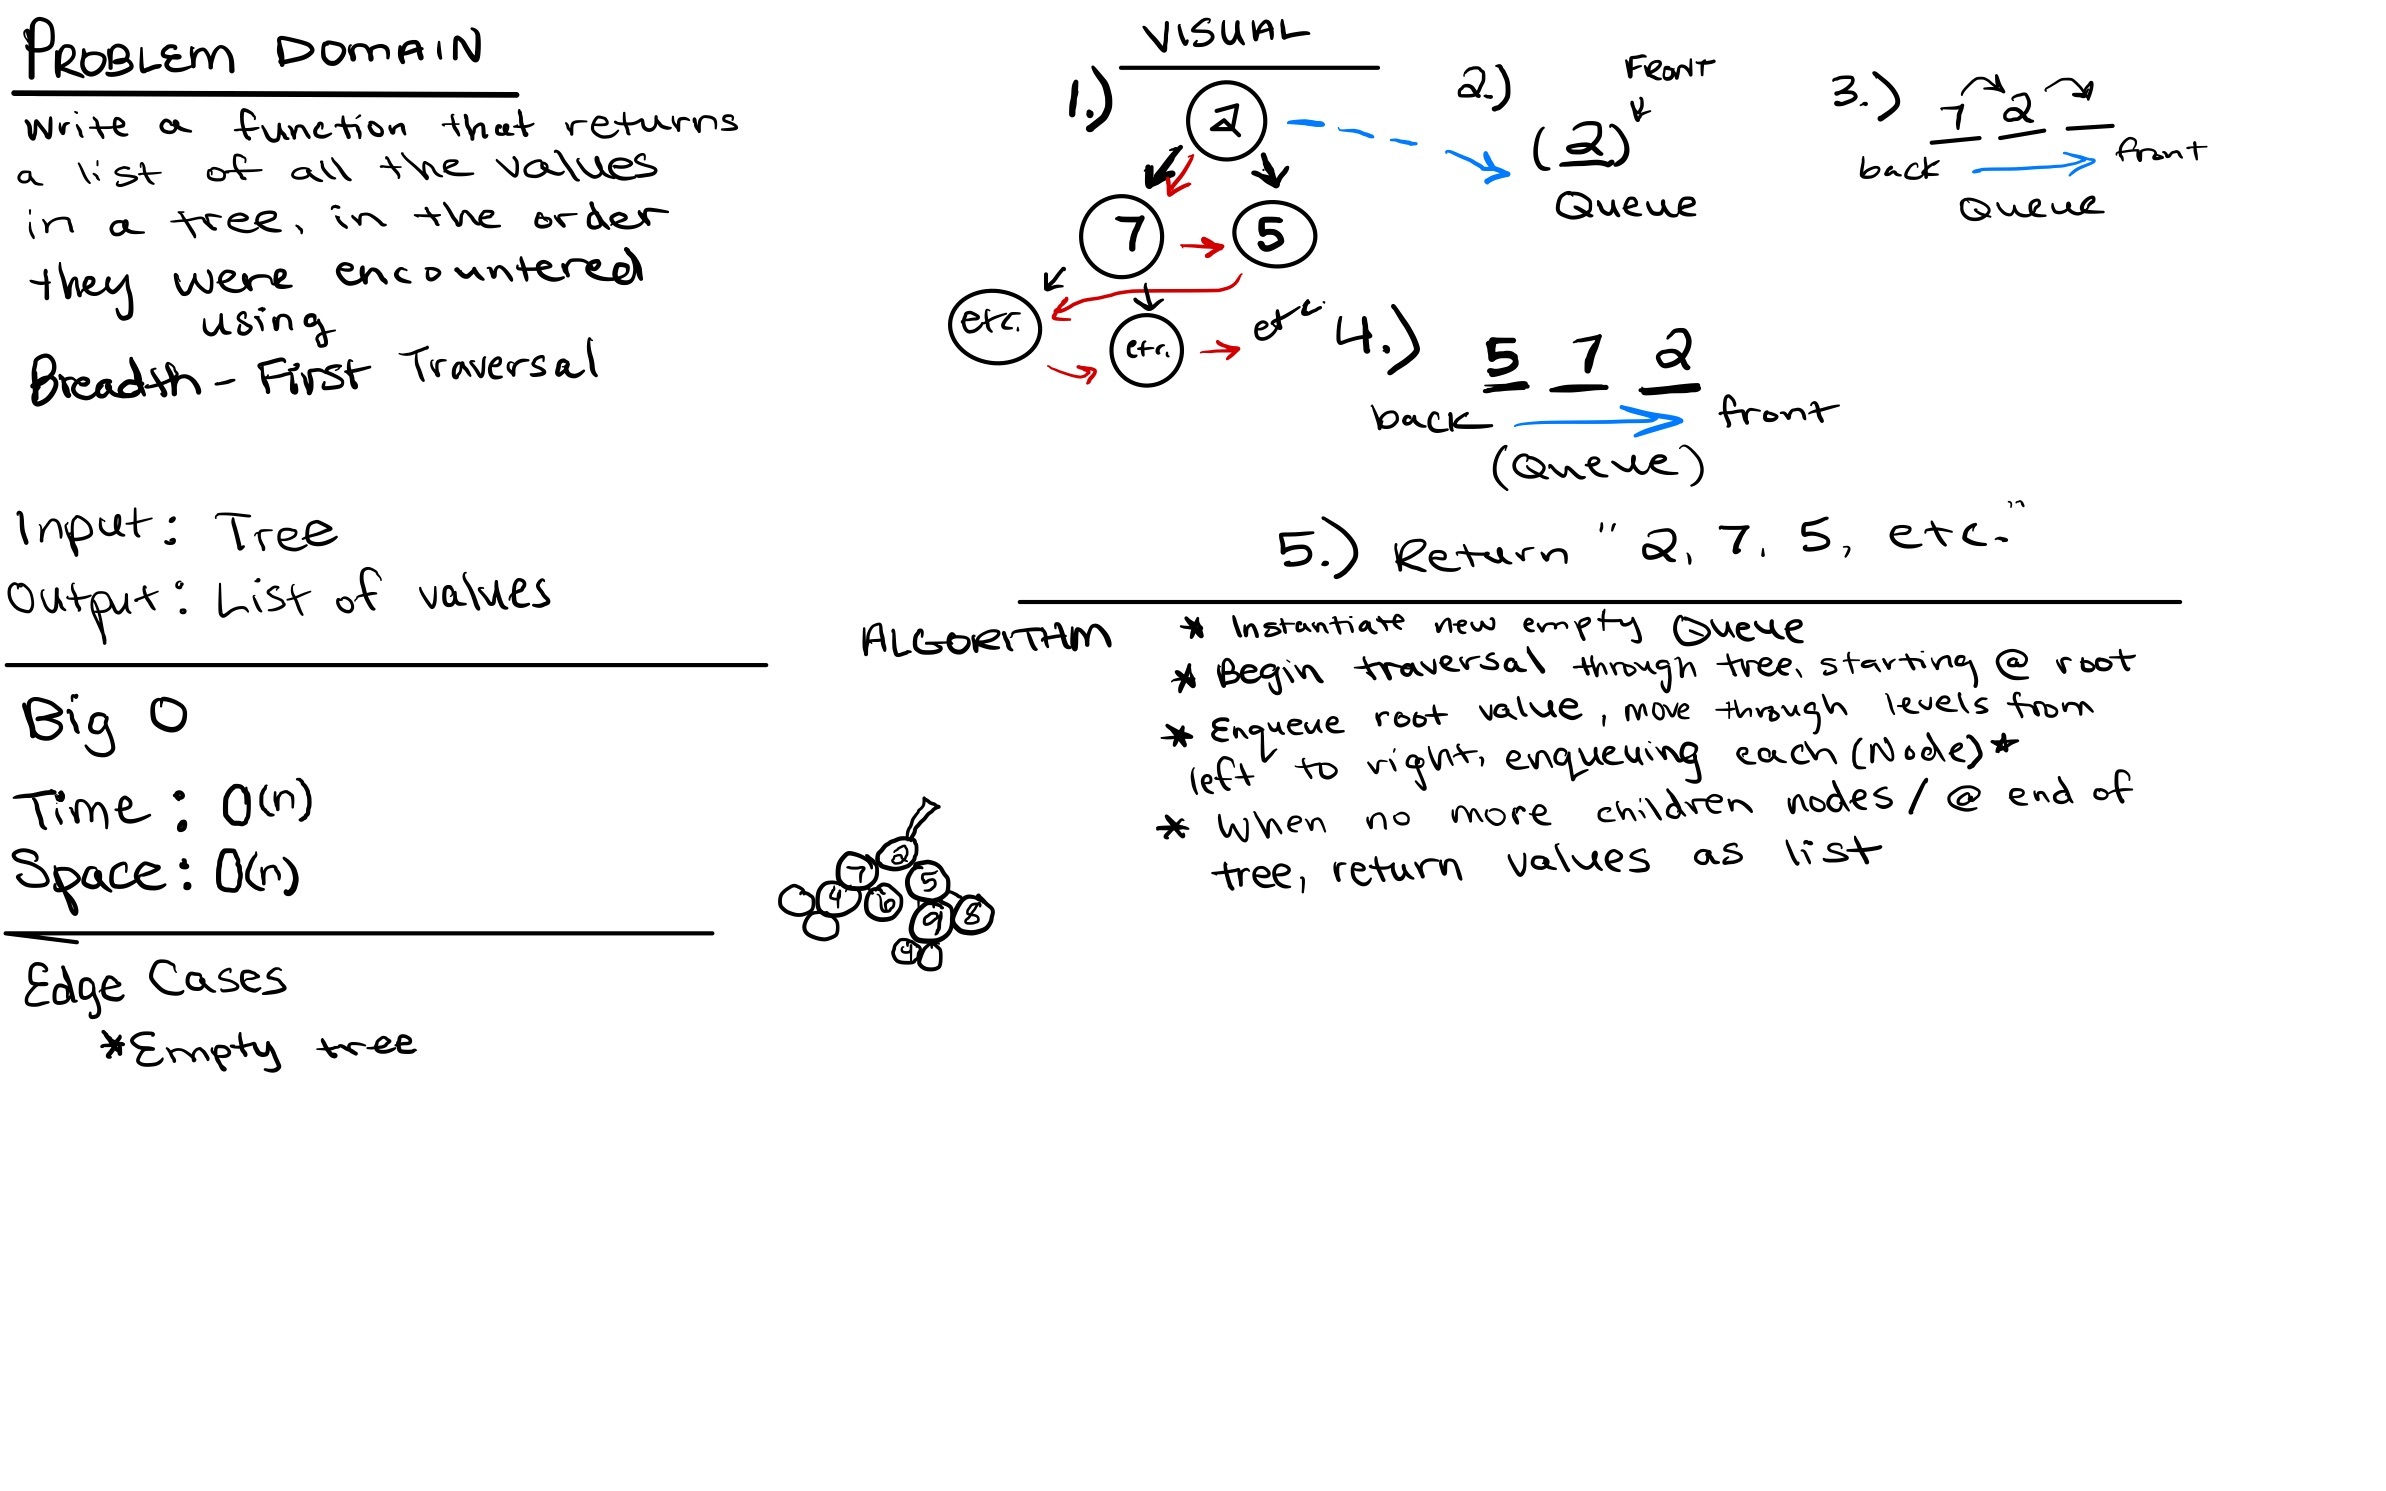 PROBLEM DOMAIN
Write a function that returns
a list of all the values
in a tree, in the order
they were encountered
using
Breadth-First Traversal
Input: Tree
Output: List of values
Big O
Time: O(n)
Space: O(n)
Edge Cases
*Empty tree
VISUAL
1.)
2
7
5
etc.
etc.
etc.
2.)
Front
(2)
Queue
3.)
7 2
back
front
Queue
4.)
5 7 2
back
front
(Queue)
5.) Return "2, 7, 5, etc."
ALGORITHM
* Instantiate new empty Queue
* Begin traversal through tree, starting @ root
* Enqueue root value, move through levels from
left to right, enqueuing each (Node)*
* When no more children nodes / @ end of
tree, return values as list
2
7
5
4
9
8
4